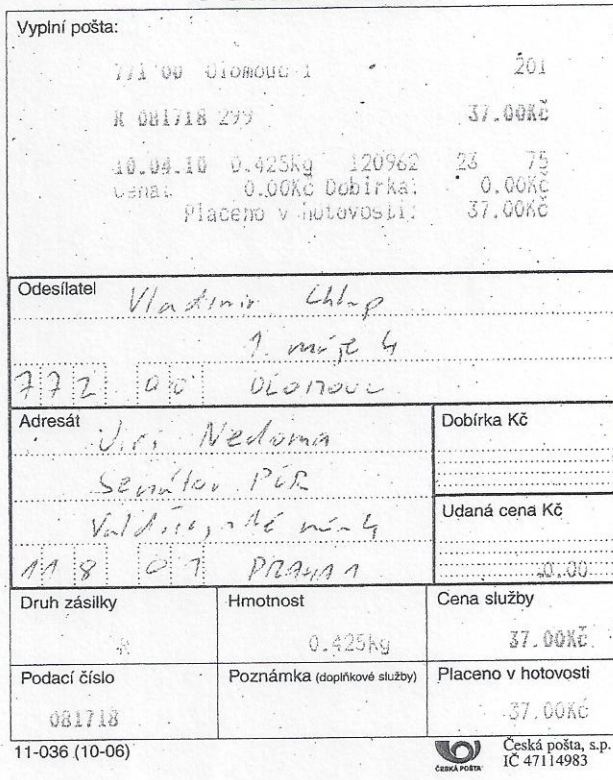 Vyplní pošta:
771 00 Olomouc 1 201
R 081718 299 37.00Kč
10.04.10 0.425Kg 120962 23 75
Cena: 0.00Kč Dobírka: 0.00Kč
Placeno v hotovosti: 37.00Kč
Odesílatel
Vladimir Chlup
1. máje 4
772 00 OLOMOUC
Adresát
Jiri Nedoma
Senátor PČR
nám 4
118 01 PRAHA 1
Dobírka Kč
Udaná cena Kč
0.00
Druh zásilky Hmotnost Cena služby
R 0.425kg 37.00Kč
Podací číslo Poznámka (doplňkové služby) Placeno v hotovosti
081718 37.00Kč
11-036 (10-06)
ČESKÁ POŠTA
Česká pošta, s.p.
IČ 47114983